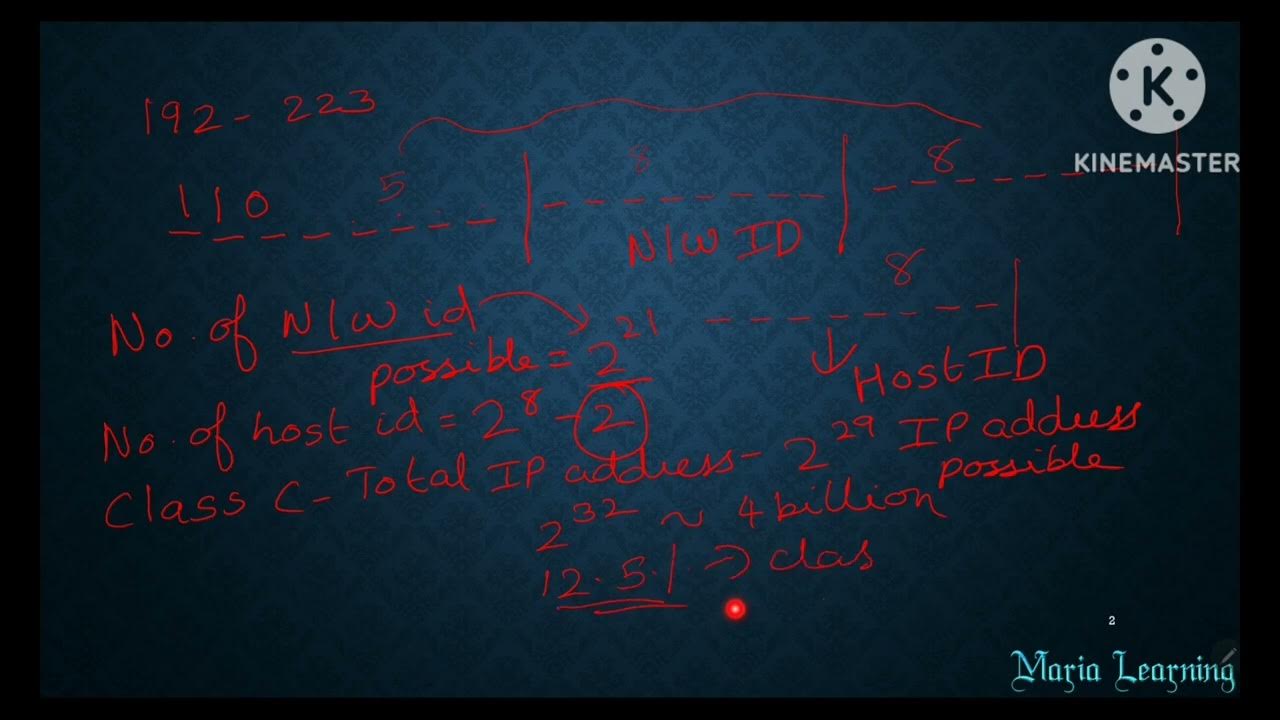 192 - 223
K
KINEMASTER
5 8 8
110
N/W ID
8
No. of N/W id
possible = 2^21
Host ID
No. of host id = 2^8 - 2
Class C - Total IP address - 2^29 IP address
possible
2^32 ~ 4 billion
12.5% => clas
2
Maria Learning